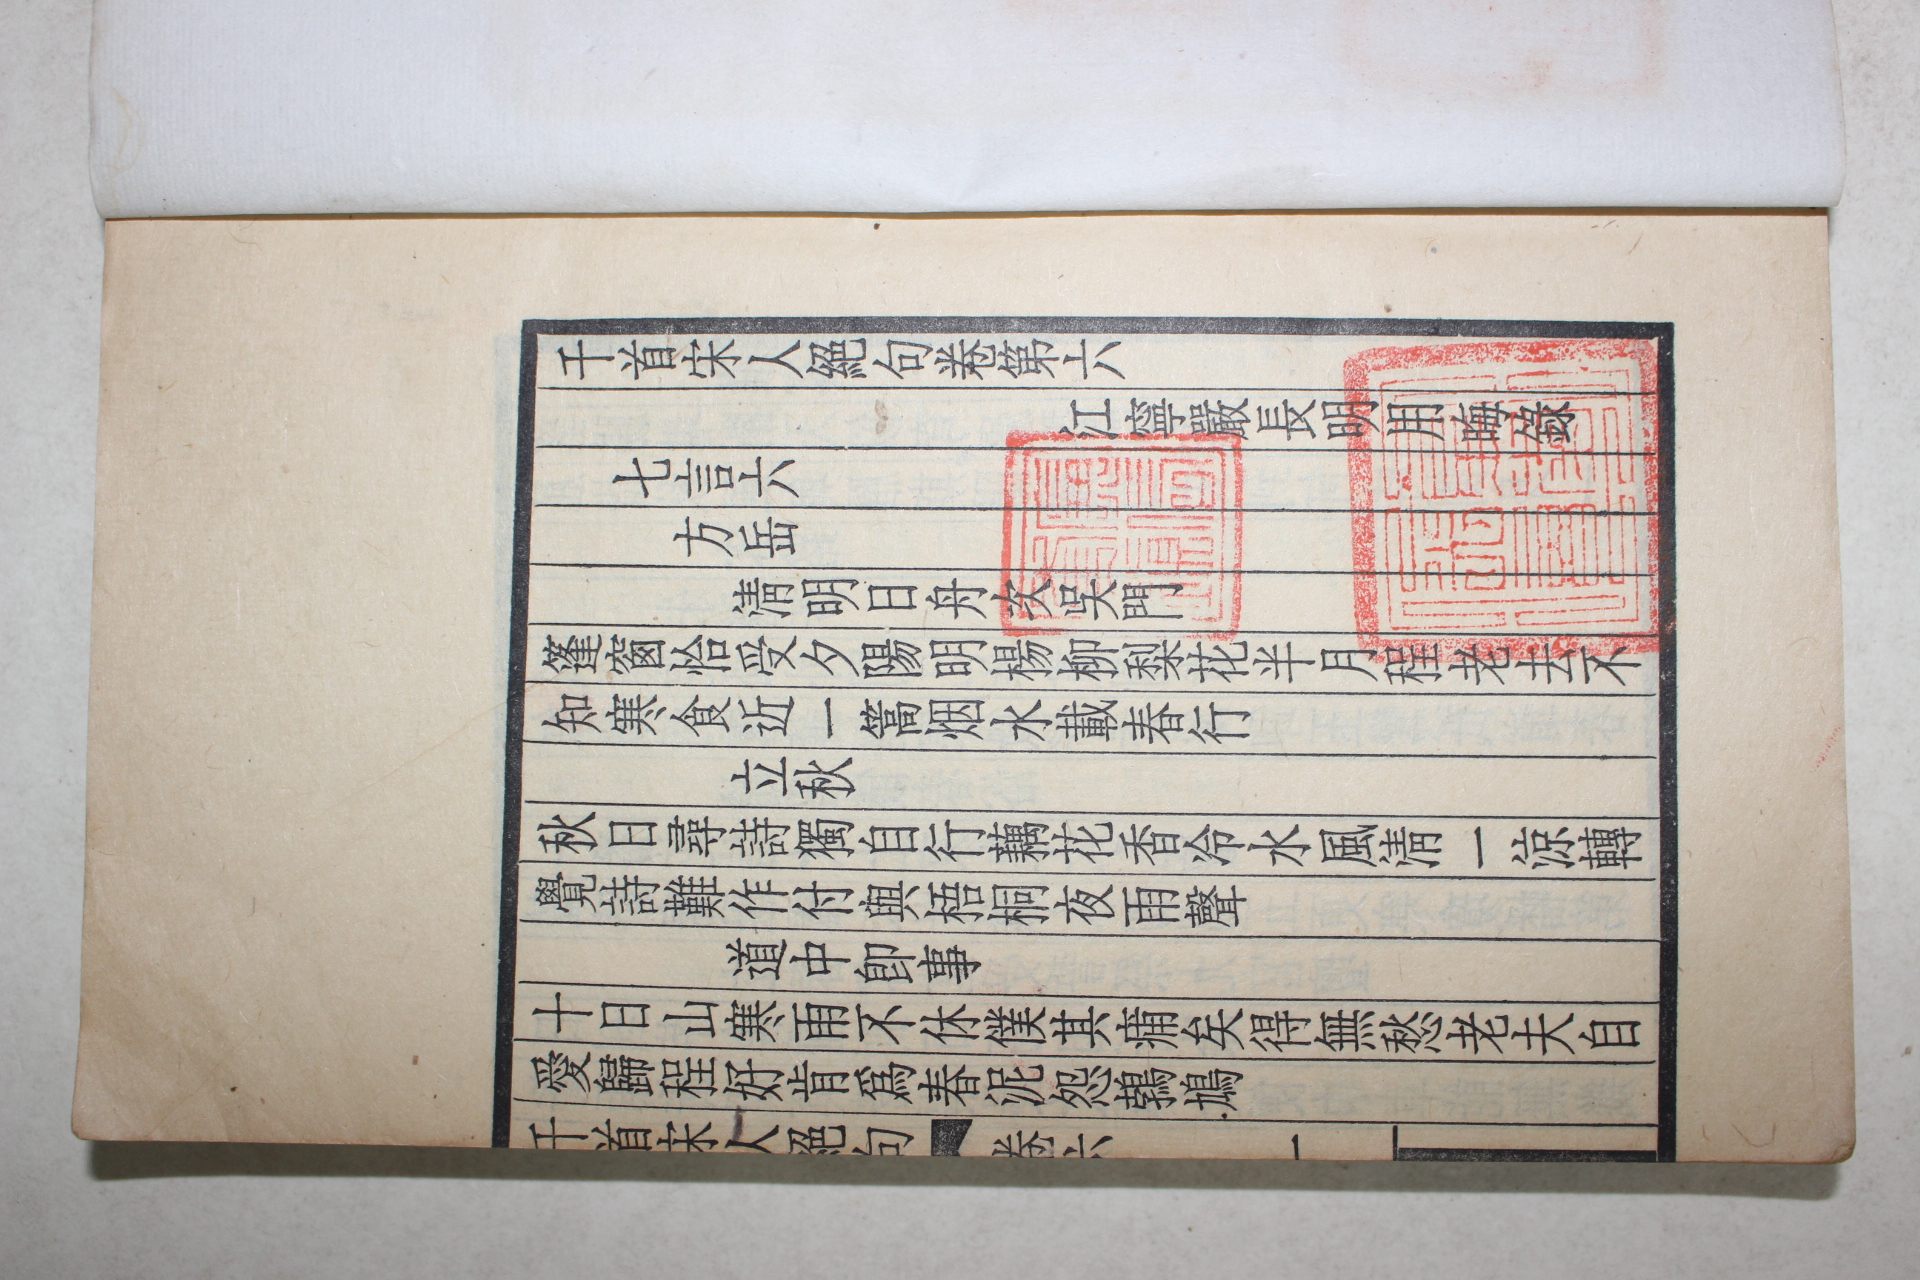 千首宋人絕句卷第六
江寧嚴長明用晦錄
七言六
方岳
清明日舟次吳門
篷窗恰受夕陽明楊柳梨花半月程老去不
知寒食近一篙烟水載春行
立秋
秋日尋詩獨自行藕花香冷水風清一凉轉
覺詩難作付與梧桐夜雨聲
道中卽事
十日山寒雨不休僕其痡矣得無愁老夫自
愛歸程好肯爲春泥怨鵓鳩
千首宋人絕句 卷六 一